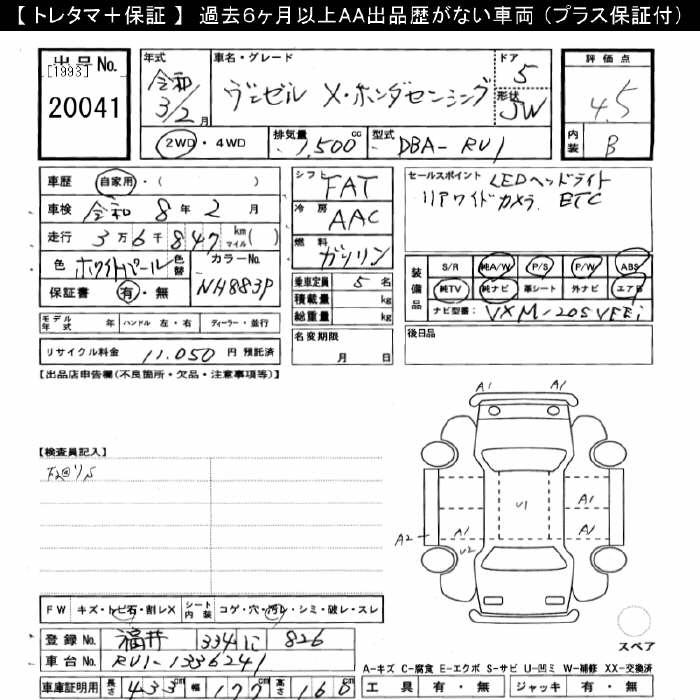 【トレタマ＋保証】 過去６ヶ月以上ＡＡ出品歴がない車両（プラス保証付）
出品No.
[1993]
20041
年式
令和
3/2月
車名・グレード
ヴェゼル X・ホンダセンシング
ドア
5
形状
JW
評価点
4.5
内装
B
2WD・4WD
排気量
1,500cc
型式
DBA-RU1
車歴 自家用・( )
車検 令和 8年 2月
走行 3万6千847 km マイル( )
色 ホワイトパール 色替
カラーNo.
NH883P
保証書 有・無
シフト FAT
冷房 AAC
燃料 ガソリン
乗車定員 5名
積載量 kg
総重量 kg
セールスポイント LEDヘッドライト
リアワイドカメラ ETC
装備品
S/R 純A/W P/S P/W ABS
純TV 純ナビ 革シート 外ナビ エアB
ナビ型番: VXM-205VFEi
モデル年式 年 ハンドル 左・右 ディーラー・並行
リサイクル料金 11,050 円 預託済
名変期限
月 日
後日品
【出品店申告欄(不良箇所・欠品・注意事項等)】
【検査員記入】
A1 A1
U1
A1
A2 A1 A1
U2
FW キズ・トビ石・割レX
シート内装 コゲ・穴・汚レ・シミ・破レ・スレ
登録No. 福井 334 に 826
車台No. RU1-1336241
車庫証明用 長さ 433cm 幅 177cm 高さ 160cm
スペア
A-キズ C-腐食 E-エクボ S-サビ U-凹ミ W-補修 XX-交換済
工具 有・無 ジャッキ 有・無